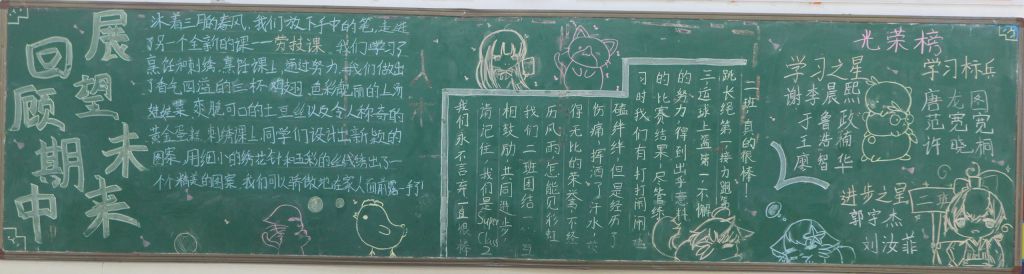 展望未来
回顾期中
沐着三月的春风,我们放下手中的笔,走进
了另一个全新的课一一劳技课。我们学习了
烹饪和刺绣,烹饪课上,通过努力,我们做出
了香气四溢的三杯鸡翅,色彩靓丽的上汤
娃娃菜,爽脆可口的土豆丝以及令人称奇的
黄金蛋糕。刺绣课上,同学们设计出新颖的
图案,用细小的绣花针和五彩的丝线绣出了一
个个精美的图案,我们可以骄傲地在家人面前露一手了!
二一班,真的很棒!
跳长绳第一,接力跑第
三,运球上篮第一,不懈
的努力,得到出乎意料
的比赛结果,尽管练
习时我们有打打闹闹,
磕磕绊绊,但是经历了
伤痛,挥洒了汗水,
得无比的荣誉,不经
历风雨,怎能见彩虹
我们二班团结一心,
相鼓励,共同进步,
肯记住,我们是Super Class2
我们永不言弃,一直很棒
光荣榜
学习之星
谢李晨熙
于鲁政
王浩楠
廖智华
学习标兵
唐龙图
范宽宽
许晓桐
进步之星
郭宇杰
刘汝菲
二班